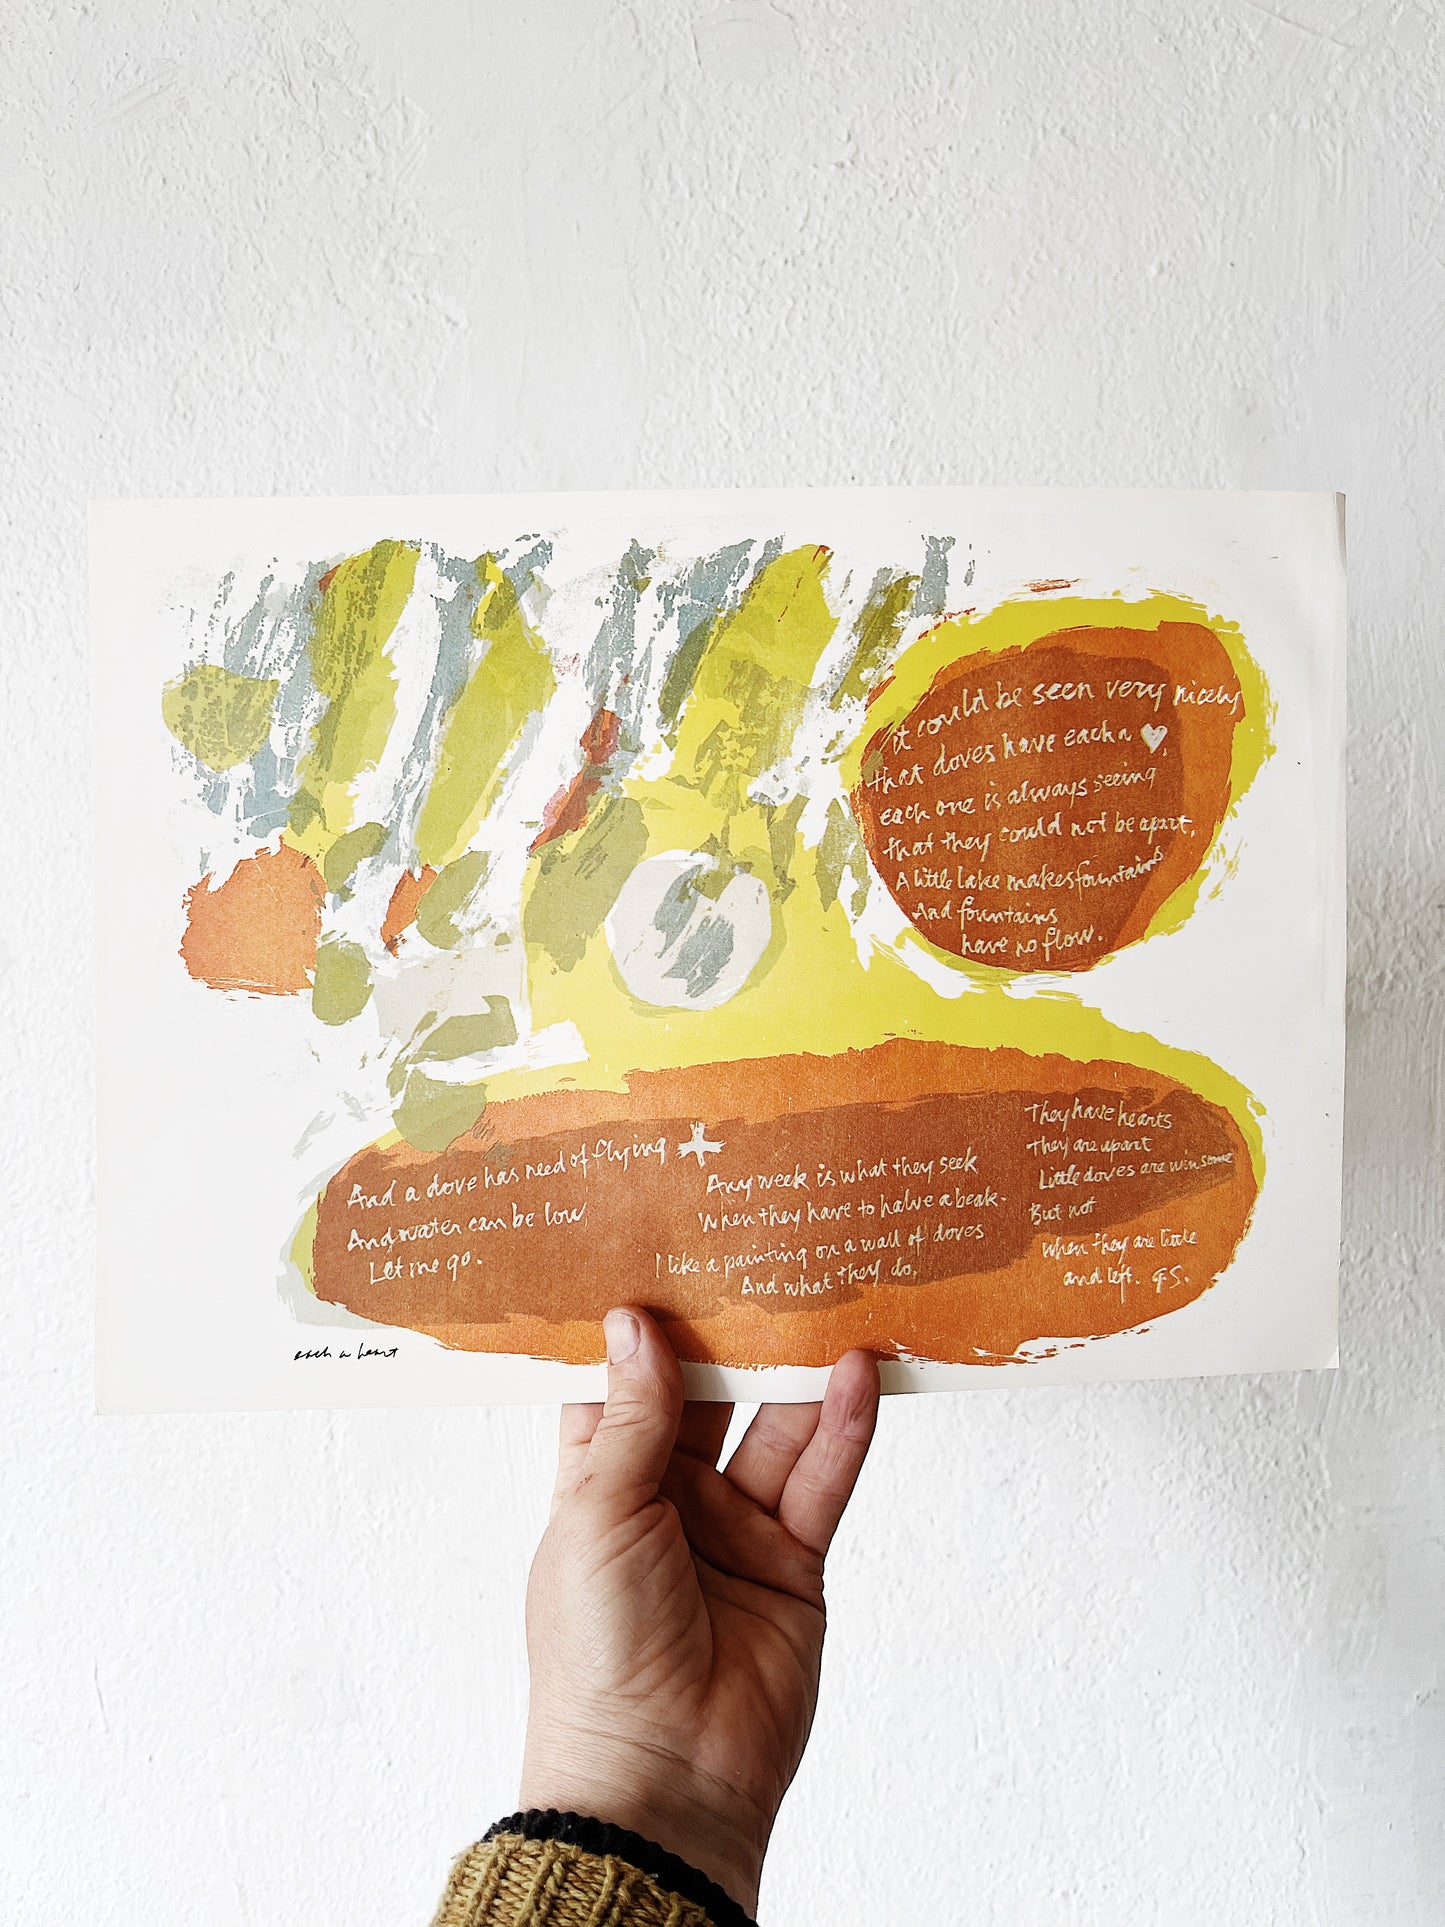 it could be seen very nicely
that doves have each a ♥,
each one is always seeing
that they could not be apart,
A little lake makes fountains
And fountains
have no flow.
And a dove has need of flying
And water can be low,
Let me go.
Any week is what they seek
When they have to halve a beak.
I like a painting on a wall of doves
And what they do.
They have hearts
They are apart
Little doves are winsome
But not
when they are little
and left. G.S.
each a heart